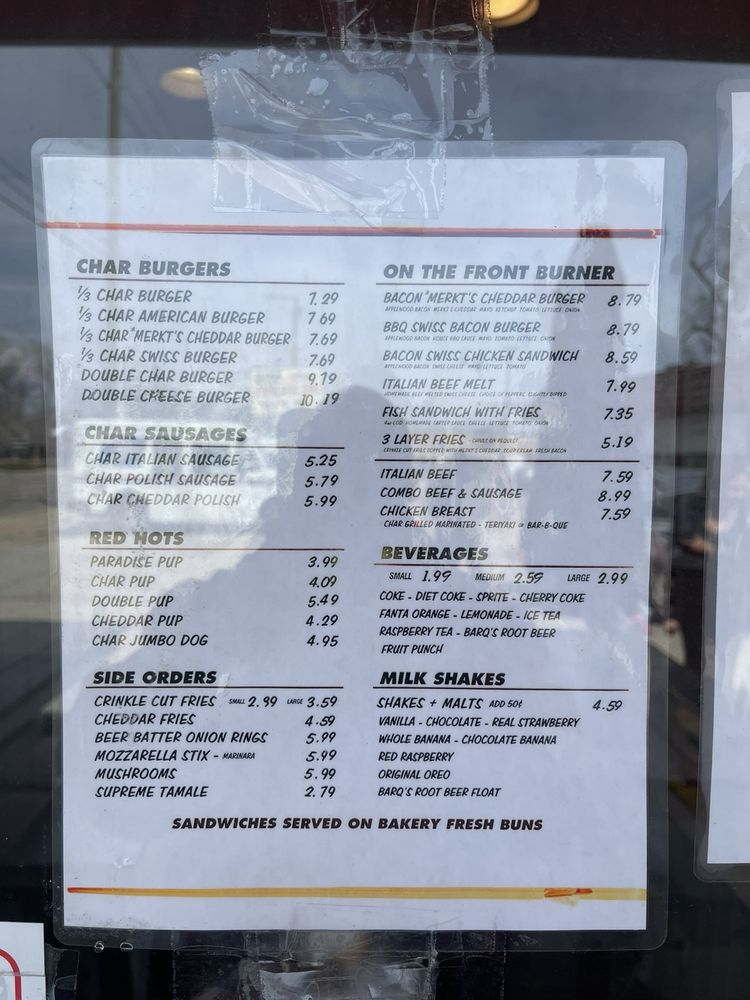 CHAR BURGERS
1/3 CHAR BURGER 7.29
1/3 CHAR AMERICAN BURGER 7.69
1/3 CHAR*MERKT'S CHEDDAR BURGER 7.69
1/3 CHAR SWISS BURGER 7.69
DOUBLE CHAR BURGER 9.79
DOUBLE CHEESE BURGER 10.19
CHAR SAUSAGES
CHAR ITALIAN SAUSAGE 5.25
CHAR POLISH SAUSAGE 5.79
CHAR CHEDDAR POLISH 5.99
RED HOTS
PARADISE PUP 3.99
CHAR PUP 4.09
DOUBLE PUP 5.49
CHEDDAR PUP 4.29
CHAR JUMBO DOG 4.95
SIDE ORDERS
CRINKLE CUT FRIES SMALL 2.99 LARGE 3.59
CHEDDAR FRIES 4.59
BEER BATTER ONION RINGS 5.99
MOZZARELLA STIX - MARINARA 5.99
MUSHROOMS 5.99
SUPREME TAMALE 2.79
ON THE FRONT BURNER
BACON*MERKT'S CHEDDAR BURGER 8.79
APPLEWOOD BACON MERKT'S CHEDDAR MAYO KETCHUP TOMATO LETTUCE ONION
BBQ SWISS BACON BURGER 8.79
APPLEWOOD BACON HOUSE BBQ SAUCE MAYO TOMATO LETTUCE ONION
BACON SWISS CHICKEN SANDWICH 8.59
APPLEWOOD BACON SWISS CHEESE MAYO LETTUCE TOMATO
ITALIAN BEEF MELT 7.99
HOMEMADE BEEF MELTED SWISS CHEESE CHOICE OF PEPPERS SLIGHTLY DIPPED
FISH SANDWICH WITH FRIES 7.35
4oz COD HOMEMADE TARTER SAUCE CHEESE LETTUCE TOMATO ONION
3 LAYER FRIES - CHIVES ON REQUEST 5.19
CRINKLE CUT FRIES TOPPED WITH MERKT'S CHEDDAR SOUR CREAM FRESH BACON
ITALIAN BEEF 7.59
COMBO BEEF & SAUSAGE 8.99
CHICKEN BREAST 7.59
CHAR GRILLED MARINATED - TERIYAKI OR BAR-B-QUE
BEVERAGES
SMALL 1.99 MEDIUM 2.59 LARGE 2.99
COKE - DIET COKE - SPRITE - CHERRY COKE
FANTA ORANGE - LEMONADE - ICE TEA
RASPBERRY TEA - BARQ'S ROOT BEER
FRUIT PUNCH
MILK SHAKES
SHAKES + MALTS ADD 50¢ 4.59
VANILLA - CHOCOLATE - REAL STRAWBERRY
WHOLE BANANA - CHOCOLATE BANANA
RED RASPBERRY
ORIGINAL OREO
BARQ'S ROOT BEER FLOAT
SANDWICHES SERVED ON BAKERY FRESH BUNS